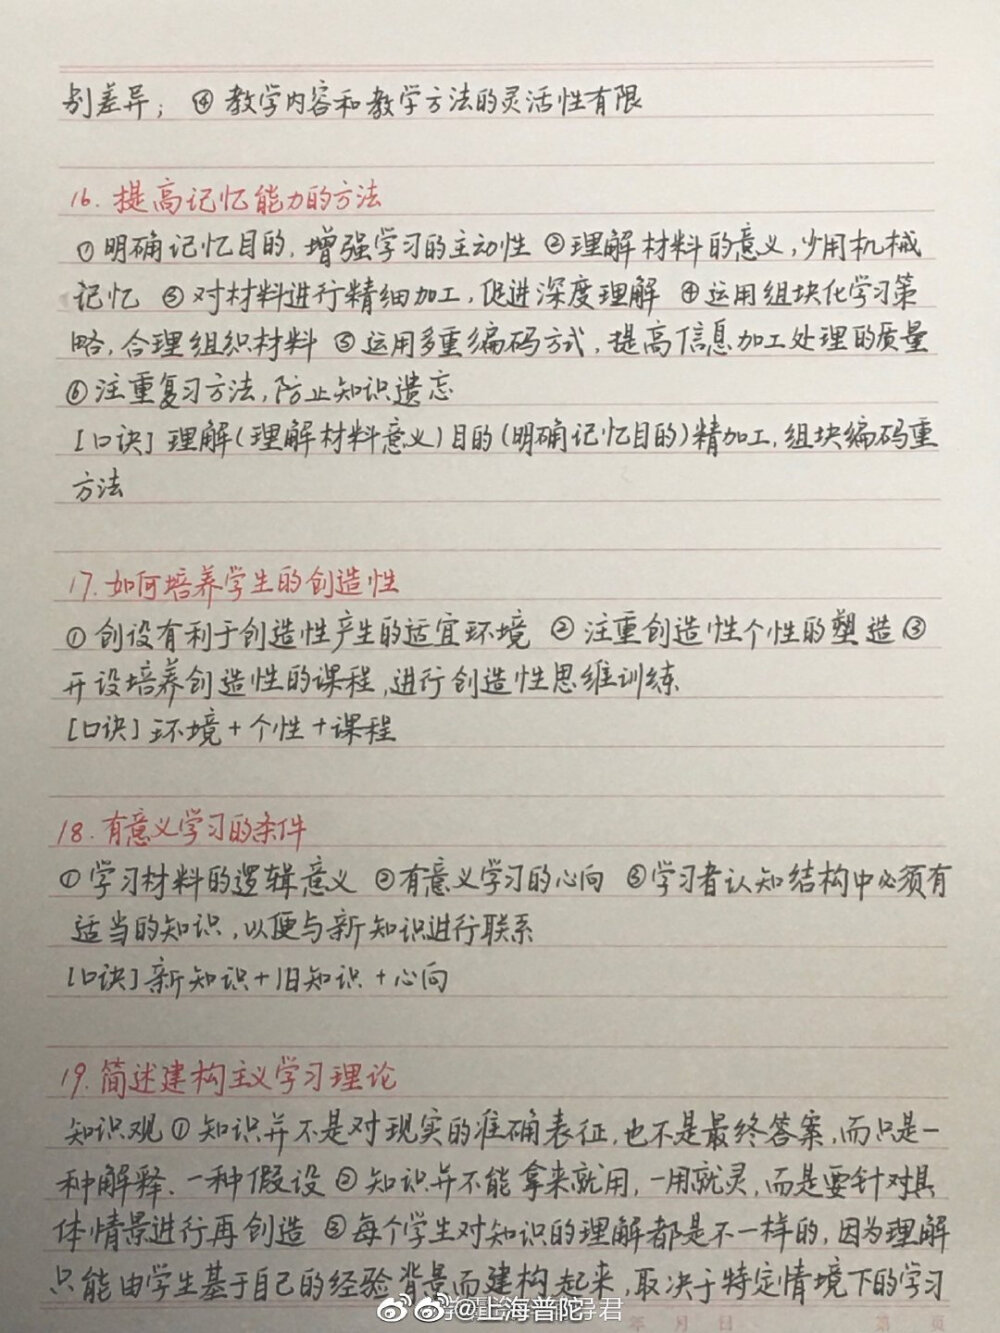 别差异；④教学内容和教学方法的灵活性有限
16.提高记忆能力的方法
①明确记忆目的,增强学习的主动性 ②理解材料的意义,少用机械
记忆 ③对材料进行精细加工,促进深度理解 ④运用组块化学习策
略,合理组织材料 ⑤运用多重编码方式,提高信息加工处理的质量
⑥注重复习方法,防止知识遗忘
[口诀]理解(理解材料意义)目的(明确记忆目的)精加工,组块编码重
方法
17.如何培养学生的创造性
①创设有利于创造性产生的适宜环境 ②注重创造性个性的塑造③
开设培养创造性的课程,进行创造性思维训练
[口诀]环境+个性+课程
18.有意义学习的条件
①学习材料的逻辑意义 ②有意义学习的心向 ③学习者认知结构中必须有
适当的知识,以便与新知识进行联系
[口诀]新知识+旧知识+心向
19.简述建构主义学习理论
知识观①知识并不是对现实的准确表征,也不是最终答案,而只是一
种解释、一种假设 ②知识并不能拿来就用,一用就灵,而是要针对具
体情景进行再创造 ③每个学生对知识的理解都是不一样的,因为理解
只能由学生基于自己的经验背景而建构起来,取决于特定情境下的学习
@上海普陀导君
年 月 日 第 页